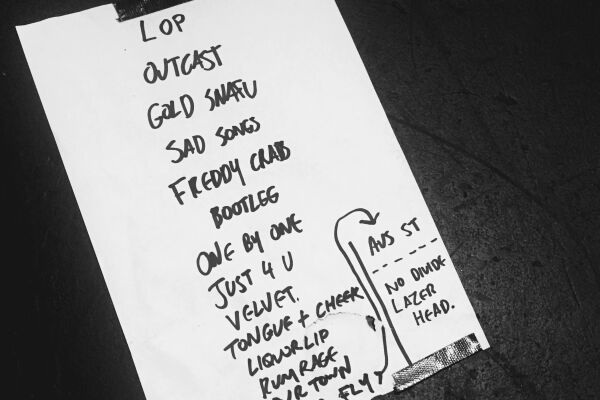 LOP
OUTCAST
GOLD SNAFU
SAD SONGS
FREDDY CRAB
BOOTLEG
ONE BY ONE
JUST 4 U
VELVET.
TONGUE + CHEEK
LIQUORLIP
RUM RAGE
TOWN
FLY
AUS ST
NO DIVIDE
LAZER
HEAD.